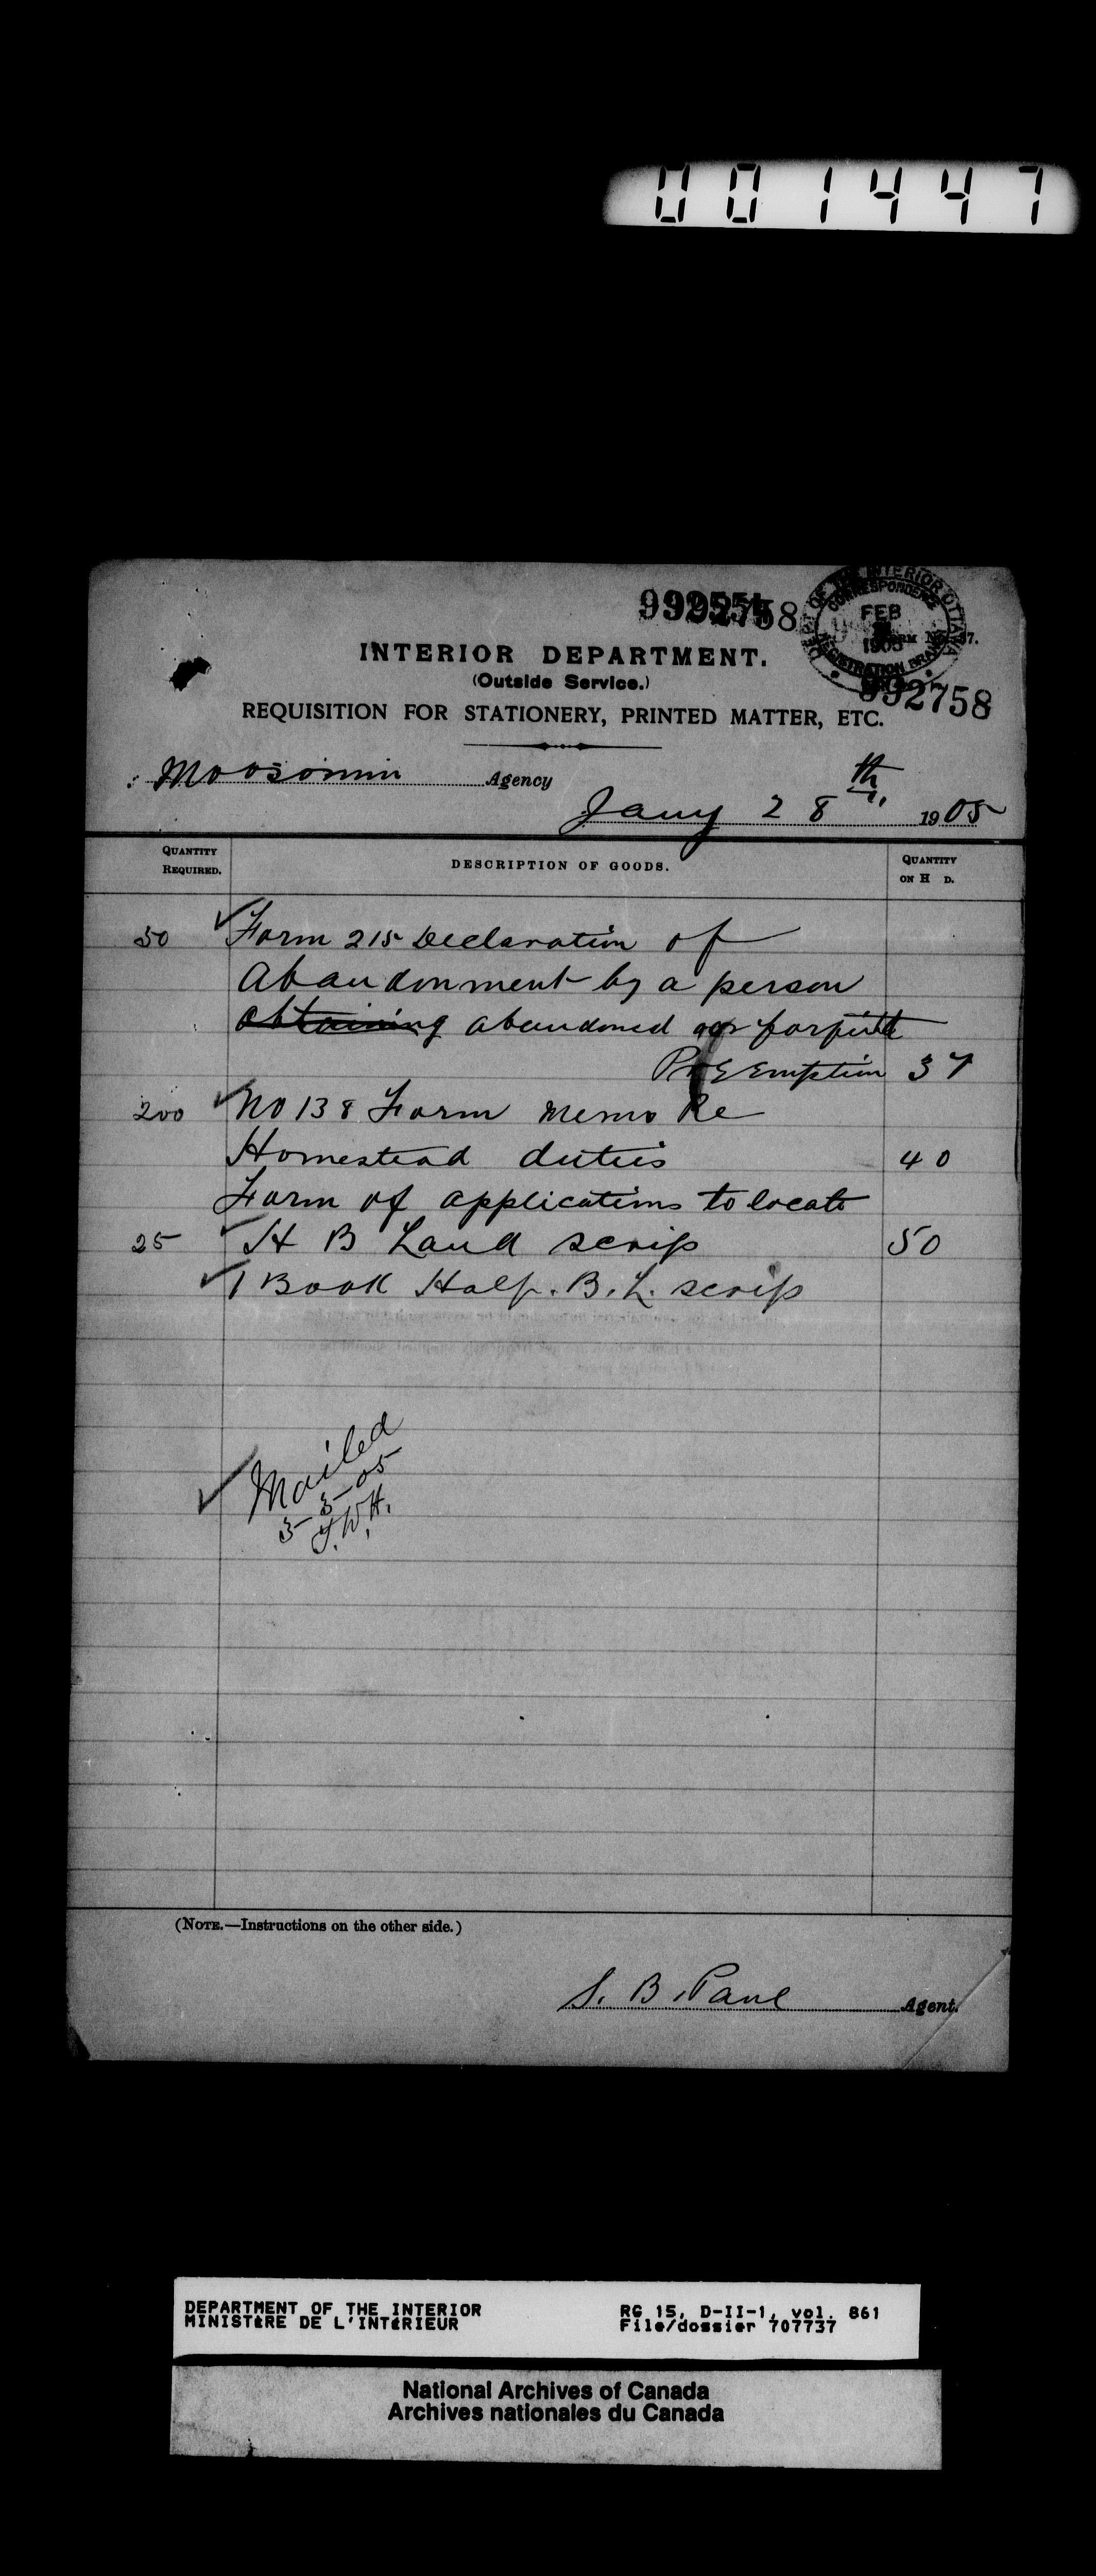 001447
992758
DEPT OF THE INTERIOR OTTAWA
CORRESPONDENCE
FEB
1905
REGISTRATION BRANCH
992758
INTERIOR DEPARTMENT.
(Outside Service.)
REQUISITION FOR STATIONERY, PRINTED MATTER, ETC.
Moosomin Agency
Jany 28th, 1905
QUANTITY REQUIRED. DESCRIPTION OF GOODS. QUANTITY ON H D.
50 Form 215 Declaration of
Abandonment by a person
obtaining abandoned or forfeit
PreEmption 37
200 No 138 Form Memo Re
Homestead duties 40
Form of applications to locate
25 H B Land scrip 50
1 Book Half. B. L. scrip
Mailed
3-3-05
J.W.H.
(NOTE.—Instructions on the other side.)
S. B. Pane Agent.
DEPARTMENT OF THE INTERIOR RG 15, D-II-1, vol. 861
MINISTÈRE DE L'INTÉRIEUR File/dossier 707737
National Archives of Canada
Archives nationales du Canada